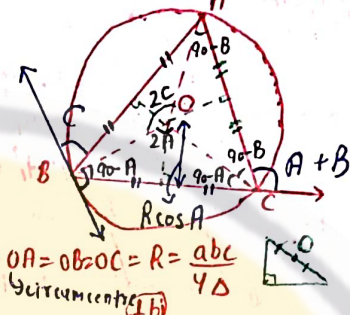 90-B
C
2C
O
2A
90-B
A + B
B
90-A
90-A
C
RcosA
O
OA=OB=OC = R = abc/4Δ
↳circumcentre ⊥bi